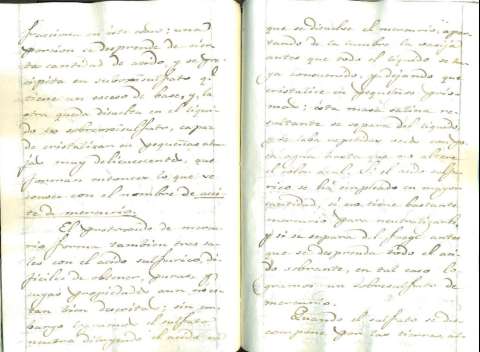 fusiones en este caso; una
porcion se desprende de cier
ta cantidad de acido, y se pre
cipita en subsulfato q.
tiene un exceso de base, y la
otra queda disuelta en el liqui
do es sobresulfato, capaz
de cristalizar en pequeñas agu
jas muy delicuescentes, que
forman entonces lo que se
conoce con el nombre de acei
te de mercurio.
El protoxido de mercu
rio forma tambien tres sa
les con el acido sulfurico di
ficiles de obtener, puras, y
cuyas propiedades aun no es
tan bien descritas; sin em
bargo el sulfato
neutro dirigiendo el acido
que se disuelve el mercurio, apar
tando de la lumbre la vasija
antes que todo el liquido se ha
ya consumido, y dejando que
cristalice en pequeños pris
mas; esta masa salina re
sultante se separa del liquido,
y se lava repetidas veces con po
ca agua hasta que no altere
el color azul. Si el acido sulfu
rico se há empleado en mayor
cantidad, si no tiene bastante
mercurio para neutralizarlo,
y si se separa del fuego antes
que se desprenda todo el aci
do sobrante, en tal caso lo
gramos un sobresulfato de
mercurio.
Cuando el sulfato se des
compone por las tierras al